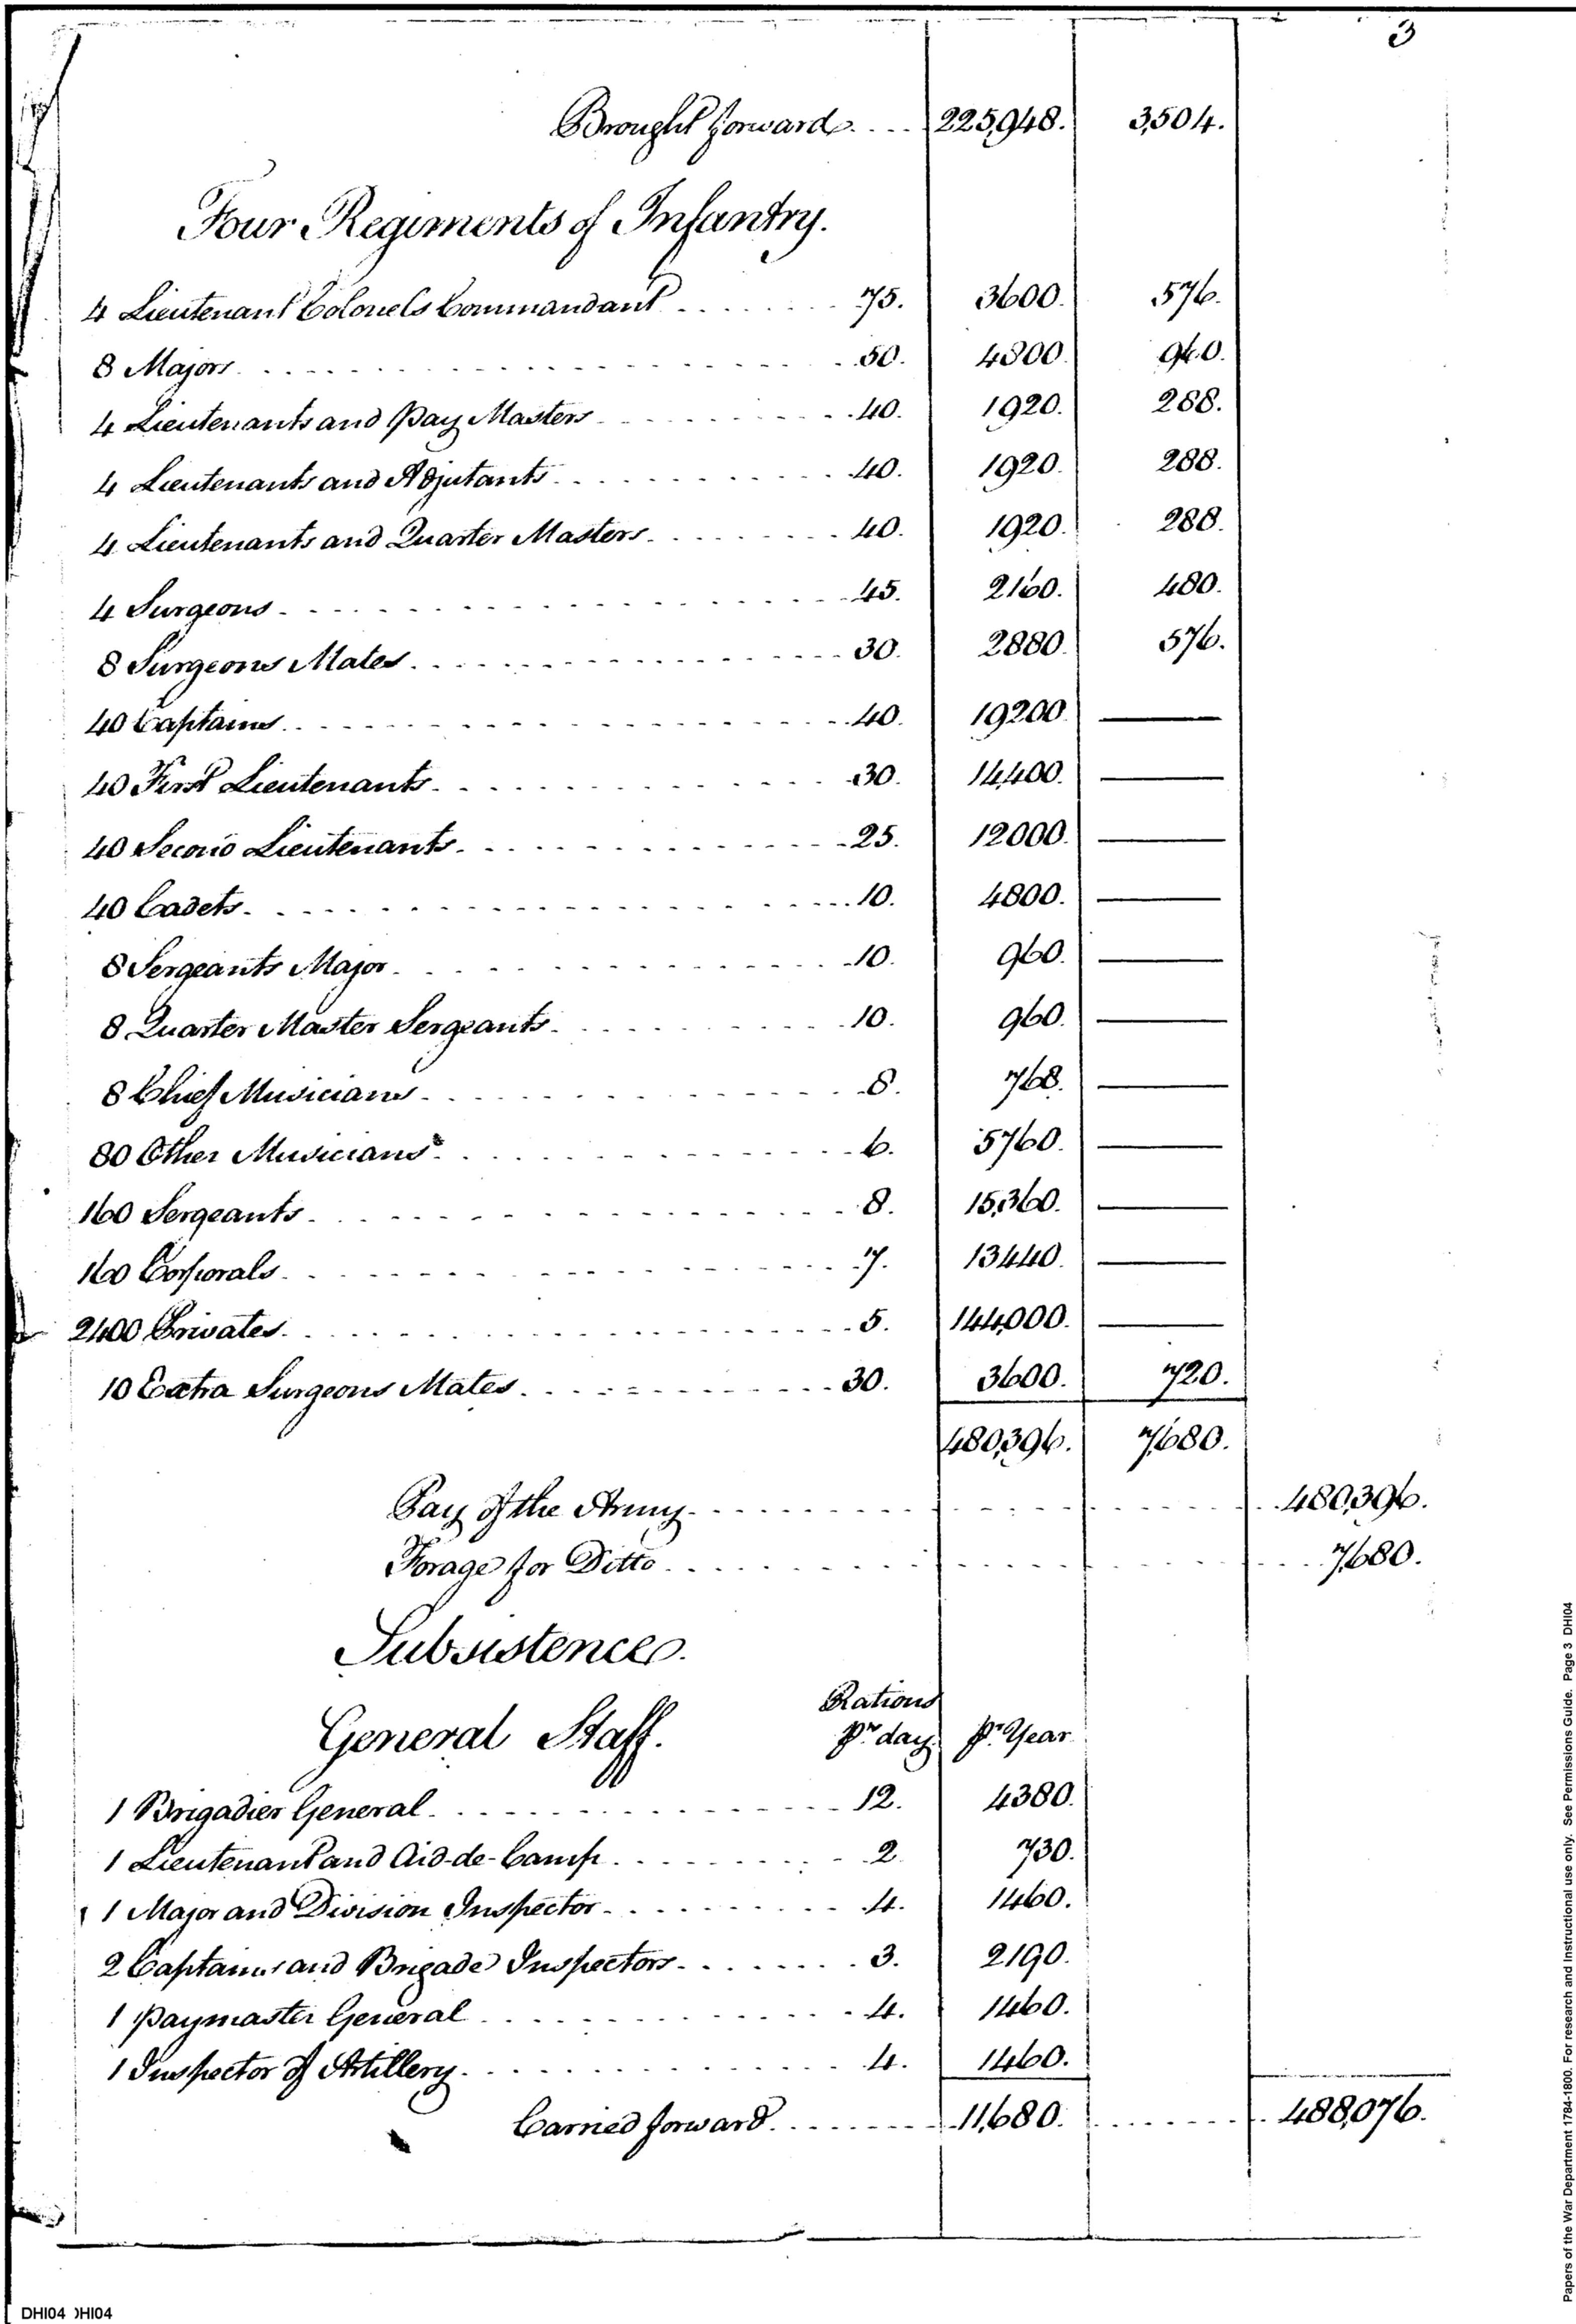 3
Brought forward .... 225,948. 3,504.
Four Regiments of Infantry.
4 Lieutenant Colonels Commandant ........ 75. 3600. 576.
8 Majors ........ 50. 4800. 960.
4 Lieutenants and Pay Masters ........ 40. 1920. 288.
4 Lieutenants and Adjutants ........ 40. 1920. 288.
4 Lieutenants and Quarter Masters ........ 40. 1920. 288.
4 Surgeons ........ 45. 2160. 480.
8 Surgeons Mates ........ 30. 2880. 576.
40 Captains ........ 40. 19200. ——
40 First Lieutenants ........ 30. 14,400. ——
40 Second Lieutenants ........ 25. 12000. ——
40 Cadets ........ 10. 4800. ——
8 Sergeants Major ........ 10. 960. ——
8 Quarter Master Sergeants ........ 10. 960. ——
8 Chief Musicians ........ 8. 768. ——
80 Other Musicians ........ 6. 5760. ——
160 Sergeants ........ 8. 15,360. ——
160 Corporals ........ 7. 13440. ——
2400 Privates ........ 5. 144,000. ——
10 Extra Surgeons Mates ........ 30. 3600. 720.
480,396. 7,680.
Pay of the Army ........ 480,396.
Forage for Ditto ........ 7,680.
Subsistence.
Rations
General Staff. pr day. pr Year
1 Brigadier General ........ 12. 4380.
1 Lieutenant and Aid-de-Camp ........ 2. 730.
1 Major and Division Inspector ........ 4. 1460.
2 Captains and Brigade Inspectors ........ 3. 2190.
1 Paymaster General ........ 4. 1460.
1 Inspector of Artillery ........ 4. 1460.
Carried forward ........ 11,680. ........ 488,076.
Papers of the War Department 1784-1800. For research and instructional use only. See Permissions Guide. Page 3 DHI04
DHI04 )HI04